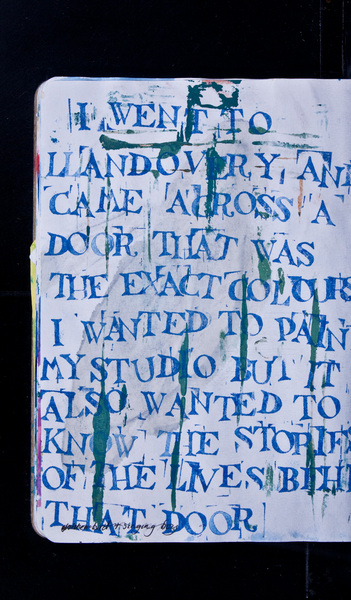 I WENT TO
LLANDOVERY, AN
CAME ACROSS A
DOOR THAT WAS
THE EXACT COLOURS
I WANTED TO PAIN
MY STUDIO BUT IT
ALSO WANTED TO
KNOW THE STORIES
OF THE LIVES BEHI
THAT DOOR